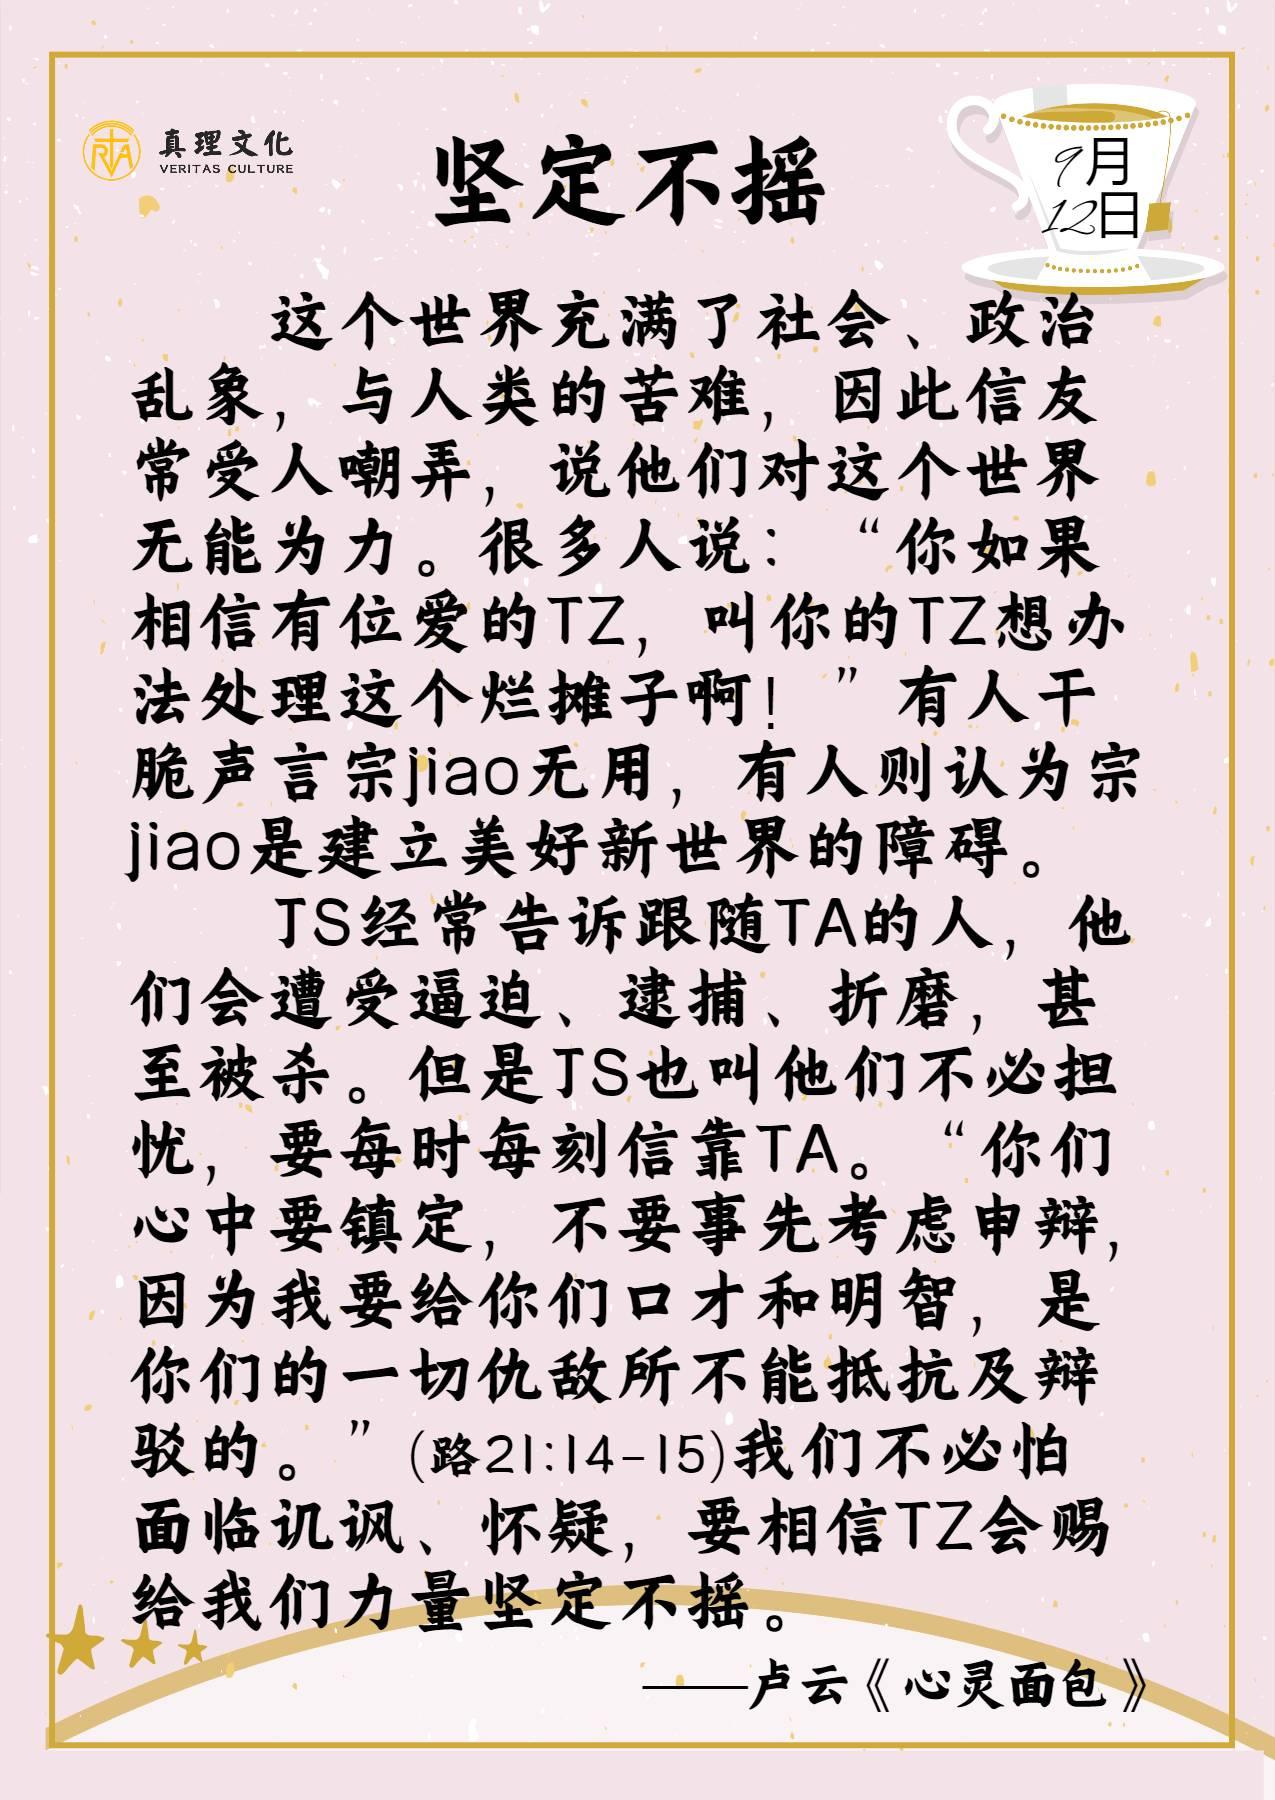 真理文化
VERITAS CULTURE
坚定不摇
9月
12日
这个世界充满了社会、政治
乱象，与人类的苦难，因此信友
常受人嘲弄，说他们对这个世界
无能为力。很多人说：“你如果
相信有位爱的TZ，叫你的TZ想办
法处理这个烂摊子啊！”有人干
脆声言宗jiao无用，有人则认为宗
jiao是建立美好新世界的障碍。
JS经常告诉跟随TA的人，他
们会遭受逼迫、逮捕、折磨，甚
至被杀。但是JS也叫他们不必担
忧，要每时每刻信靠TA。“你们
心中要镇定，不要事先考虑申辩，
因为我要给你们口才和明智，是
你们的一切仇敌所不能抵抗及辩
驳的。”(路21:14-15)我们不必怕
面临讥讽、怀疑，要相信TZ会赐
给我们力量坚定不摇。
——卢云《心灵面包》